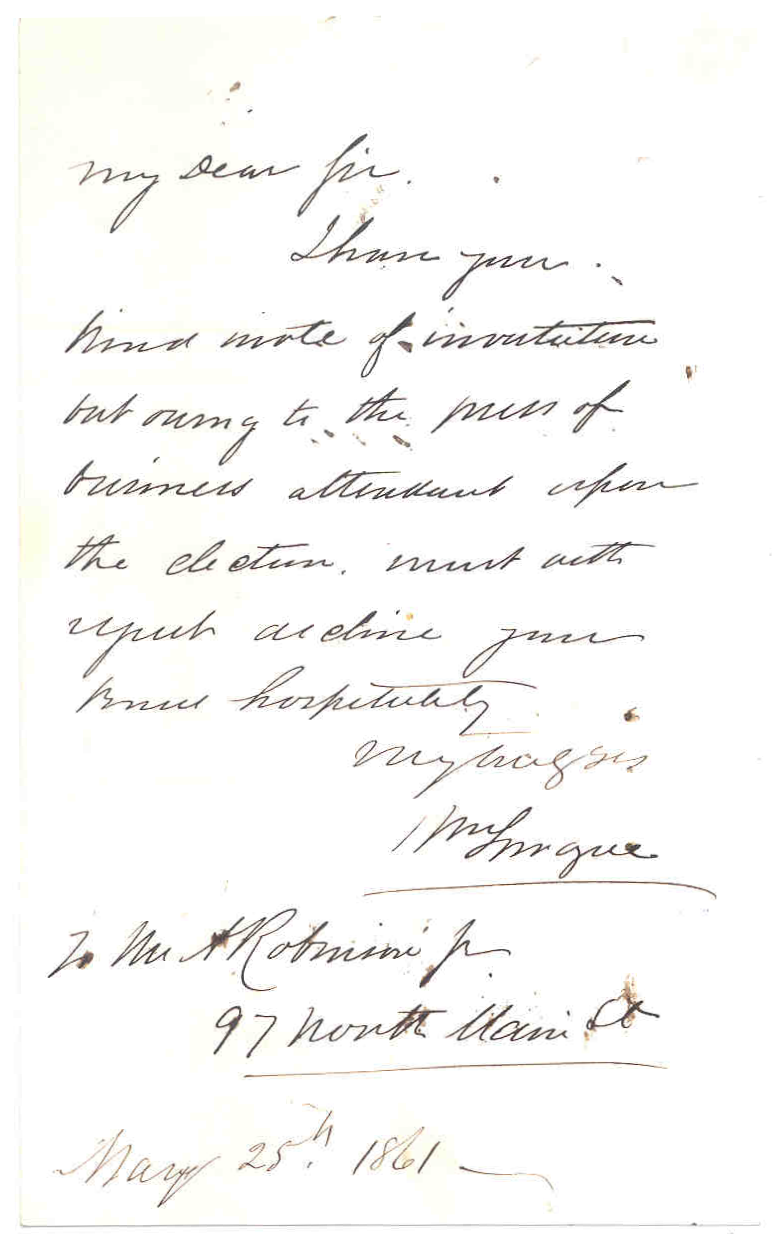 My Dear Sir.
I have your
kind note of invitation
but owing to the press of
business attendant upon
the election. must with
regret decline your
kind hospitality
Wm Sprague
To Mr A Robinson Jr
97 North Main St
May 25th. 1861